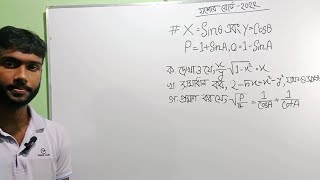 যশোর বোর্ড-২০২২
# X=Sinθ এবং Y=Cosθ
P=1+SinA, Q=1-SinA
ক. দেখাও যে, x/y √1-x² = x
খ. সমাধান কর, 2-
গ. প্রমাণ কর যে, √P/Q = 1/CosA + 1/CotA